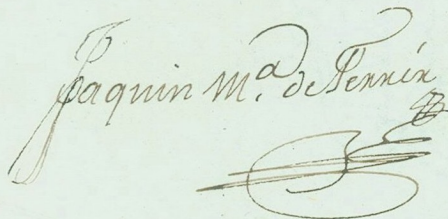 Joaquin M.ª de Ferrér